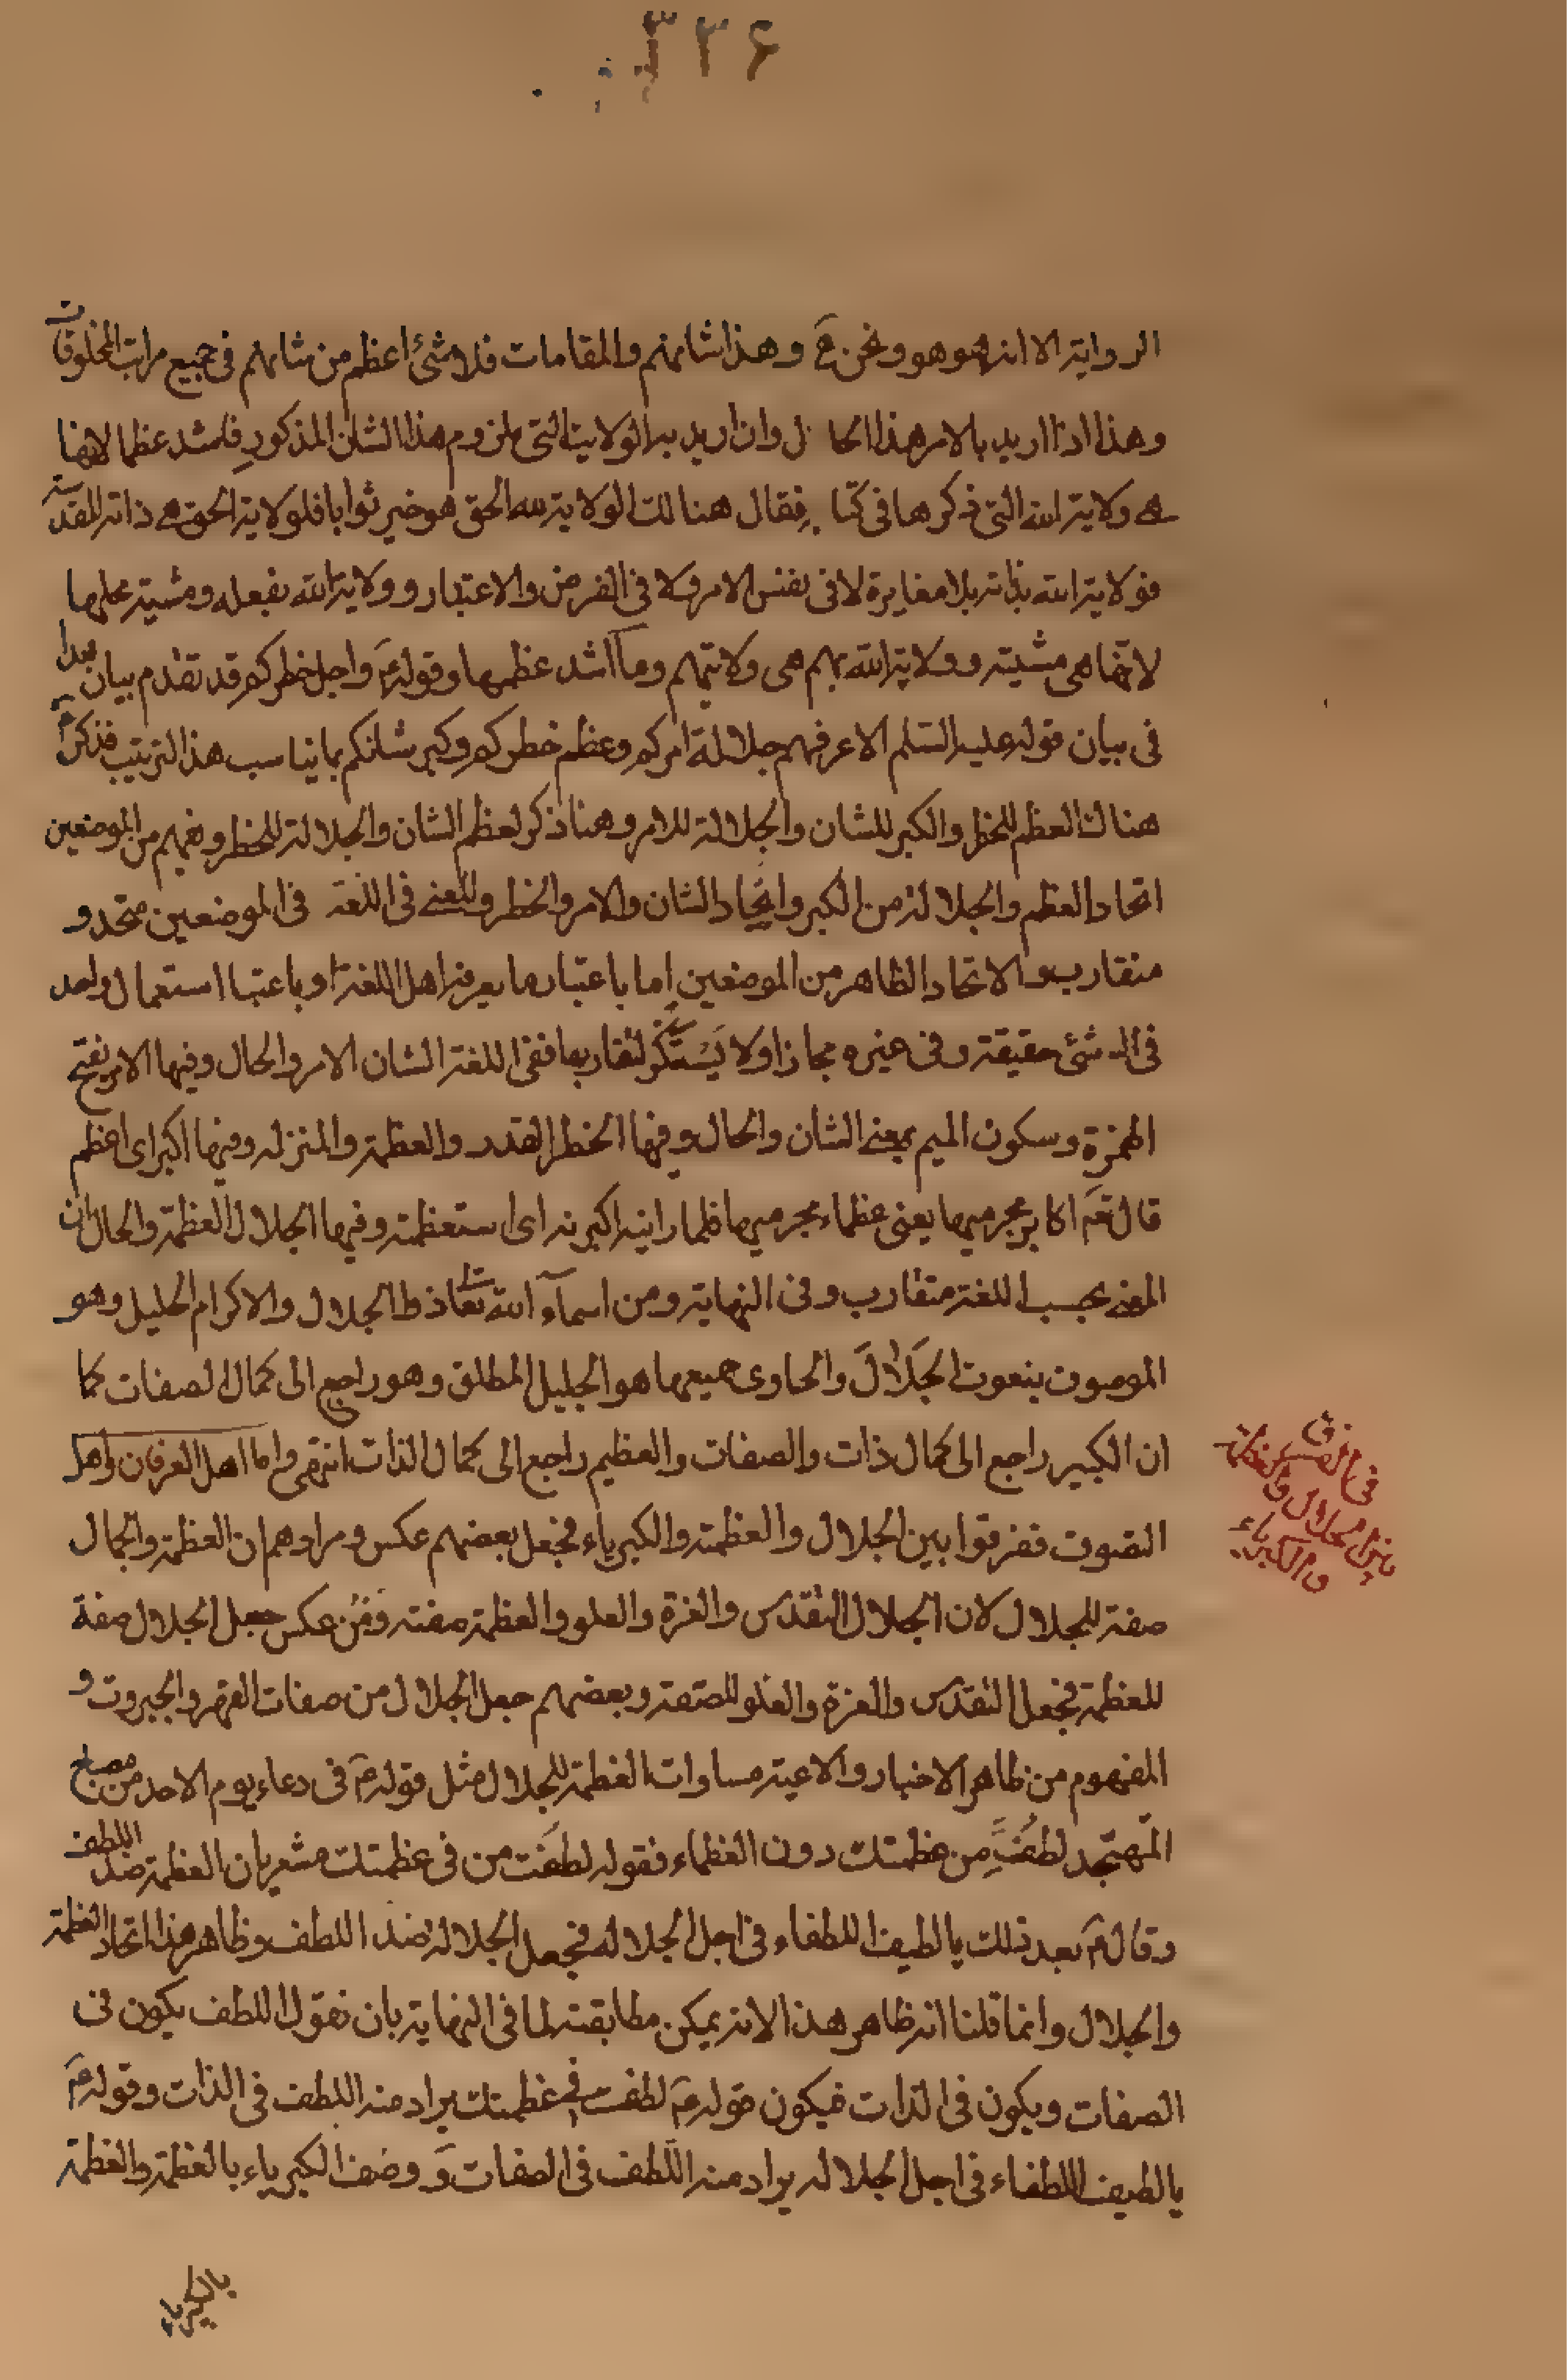 ۳۳۶
الرواية الا انه هو هو ونحن نحن وهذا شانهم والمقامات فلا شئ اعظم من شانهم فى جميع مراتب المخلوقات
وهذا اذا اريد بالامر هذا الحال وان اريد به الولاية التى ملزوم هذا الشان المذكور فاشد عظما لانها
هى ولاية الله التى ذكرها فى كتابه فقال هنالك الولاية لله الحق هو خير ثوابا فلولاية الحق هى ذاته المقدسة
فولاية الله بذاته بلا مغايرة لا فى نفس الامر ولا فى الفرض والاعتبار وولاية الله بفعله ومشيته عليها
لانها هى مشيته وولاية الله بهم هى ولايتهم وما اشد عظمها وقوله ع واجل خطركم قد تقدم بيان هذا
فى بيان قوله عليه السلم الا عرفهم جلالة امركم وعظم خطركم وكبر شانكم بما يناسب هذا الترتيب فذكر ع
هناك العظم للخطر والكبر للشان والجلالة للامر وهنا ذكر لعظم الشان والجلالة للخطر ويفهم من الموضعين
اتحاد العظم والجلالة من الكبر واتحاد الشان والامر والخطر والمعنى فى اللغة فى الموضعين متحد و
متقارب والاتحاد الظاهر من الموضعين اما باعتبار ما يعرفه اهل اللغة او باعتبا استعمال واحد
فى الشئ حقيقة وفى غيره مجازا ولا يستنكر لتقاربها ففى اللغة الشان الامر والحال وفيها الامر بفتح
الهمزة وسكون الميم بمعنى الشان والحال وفيها الخطر القدر والعظمة والمنزله وفيها اكبر اى اعظم
قال تع اكابر مجرميها يعنى عظماء مجرميها فلما راينه اكبرنه اى استعظمنه وفيها الجلال العظمة والحال ان
المعنى بحسب اللغة متقارب وفى النهاية ومن اسمآء الله تعالى ذو الجلال والاكرام الجليل وهو
الموصوف بنعوت الجلال والحاوى جميعها هو الجليل المطلق وهو راجع الى كمال الصفات كما
ان الكبير راجع الى كمال ذات والصفات والعظيم راجع الى كمال الذات انتهى واما اهل العرفان واهل
التصوف ففرقوا بين الجلال والعظمة والكبرياء فجعل بعضهم عكس ومرادهم ان العظمة والجمال
صفة للجلال لان الجلال التقدس والعزة والعلو والعظمة صفته ومن عكس جعل الجلال صفة
للعظمة فجعل التقدس والعزة والعلو للصفة وبعضهم جعل الجلال من صفات القهر والجبروت و
المفهوم من ظاهر الاخبار والادعية مساوات العظمة للجلال مثل قوله ع فى دعاء يوم الاحد من مصباح
المتهجد لطفت من عظمتك دون العظماء فقوله لطفت من فى عظمتك مشعر بان العظمة ضد اللطف
وقال ع بعد ذلك يا لطيف اللطفاء فى اجل الجلاله فجعل الجلاله ضد اللطف وظاهر هذا اتحاد العظمة
والجلال وانما قلنا انه ظاهر هذا لانه يمكن مطابقته لما فى النهاية بان نقول اللطف يكون فى
الصفات ويكون فى الذات فيكون قوله ع لطفت فى عظمتك يراد منه اللطف فى الذات وقوله ع
يا لطيف اللطفاء فى اجل الجلاله يراد منه اللطف فى الصفات ووصف الكبرياء بالعظمة والعظمة
بالكبرياء
فى الفرق
بين الجلال والعظمة
والكبرياء